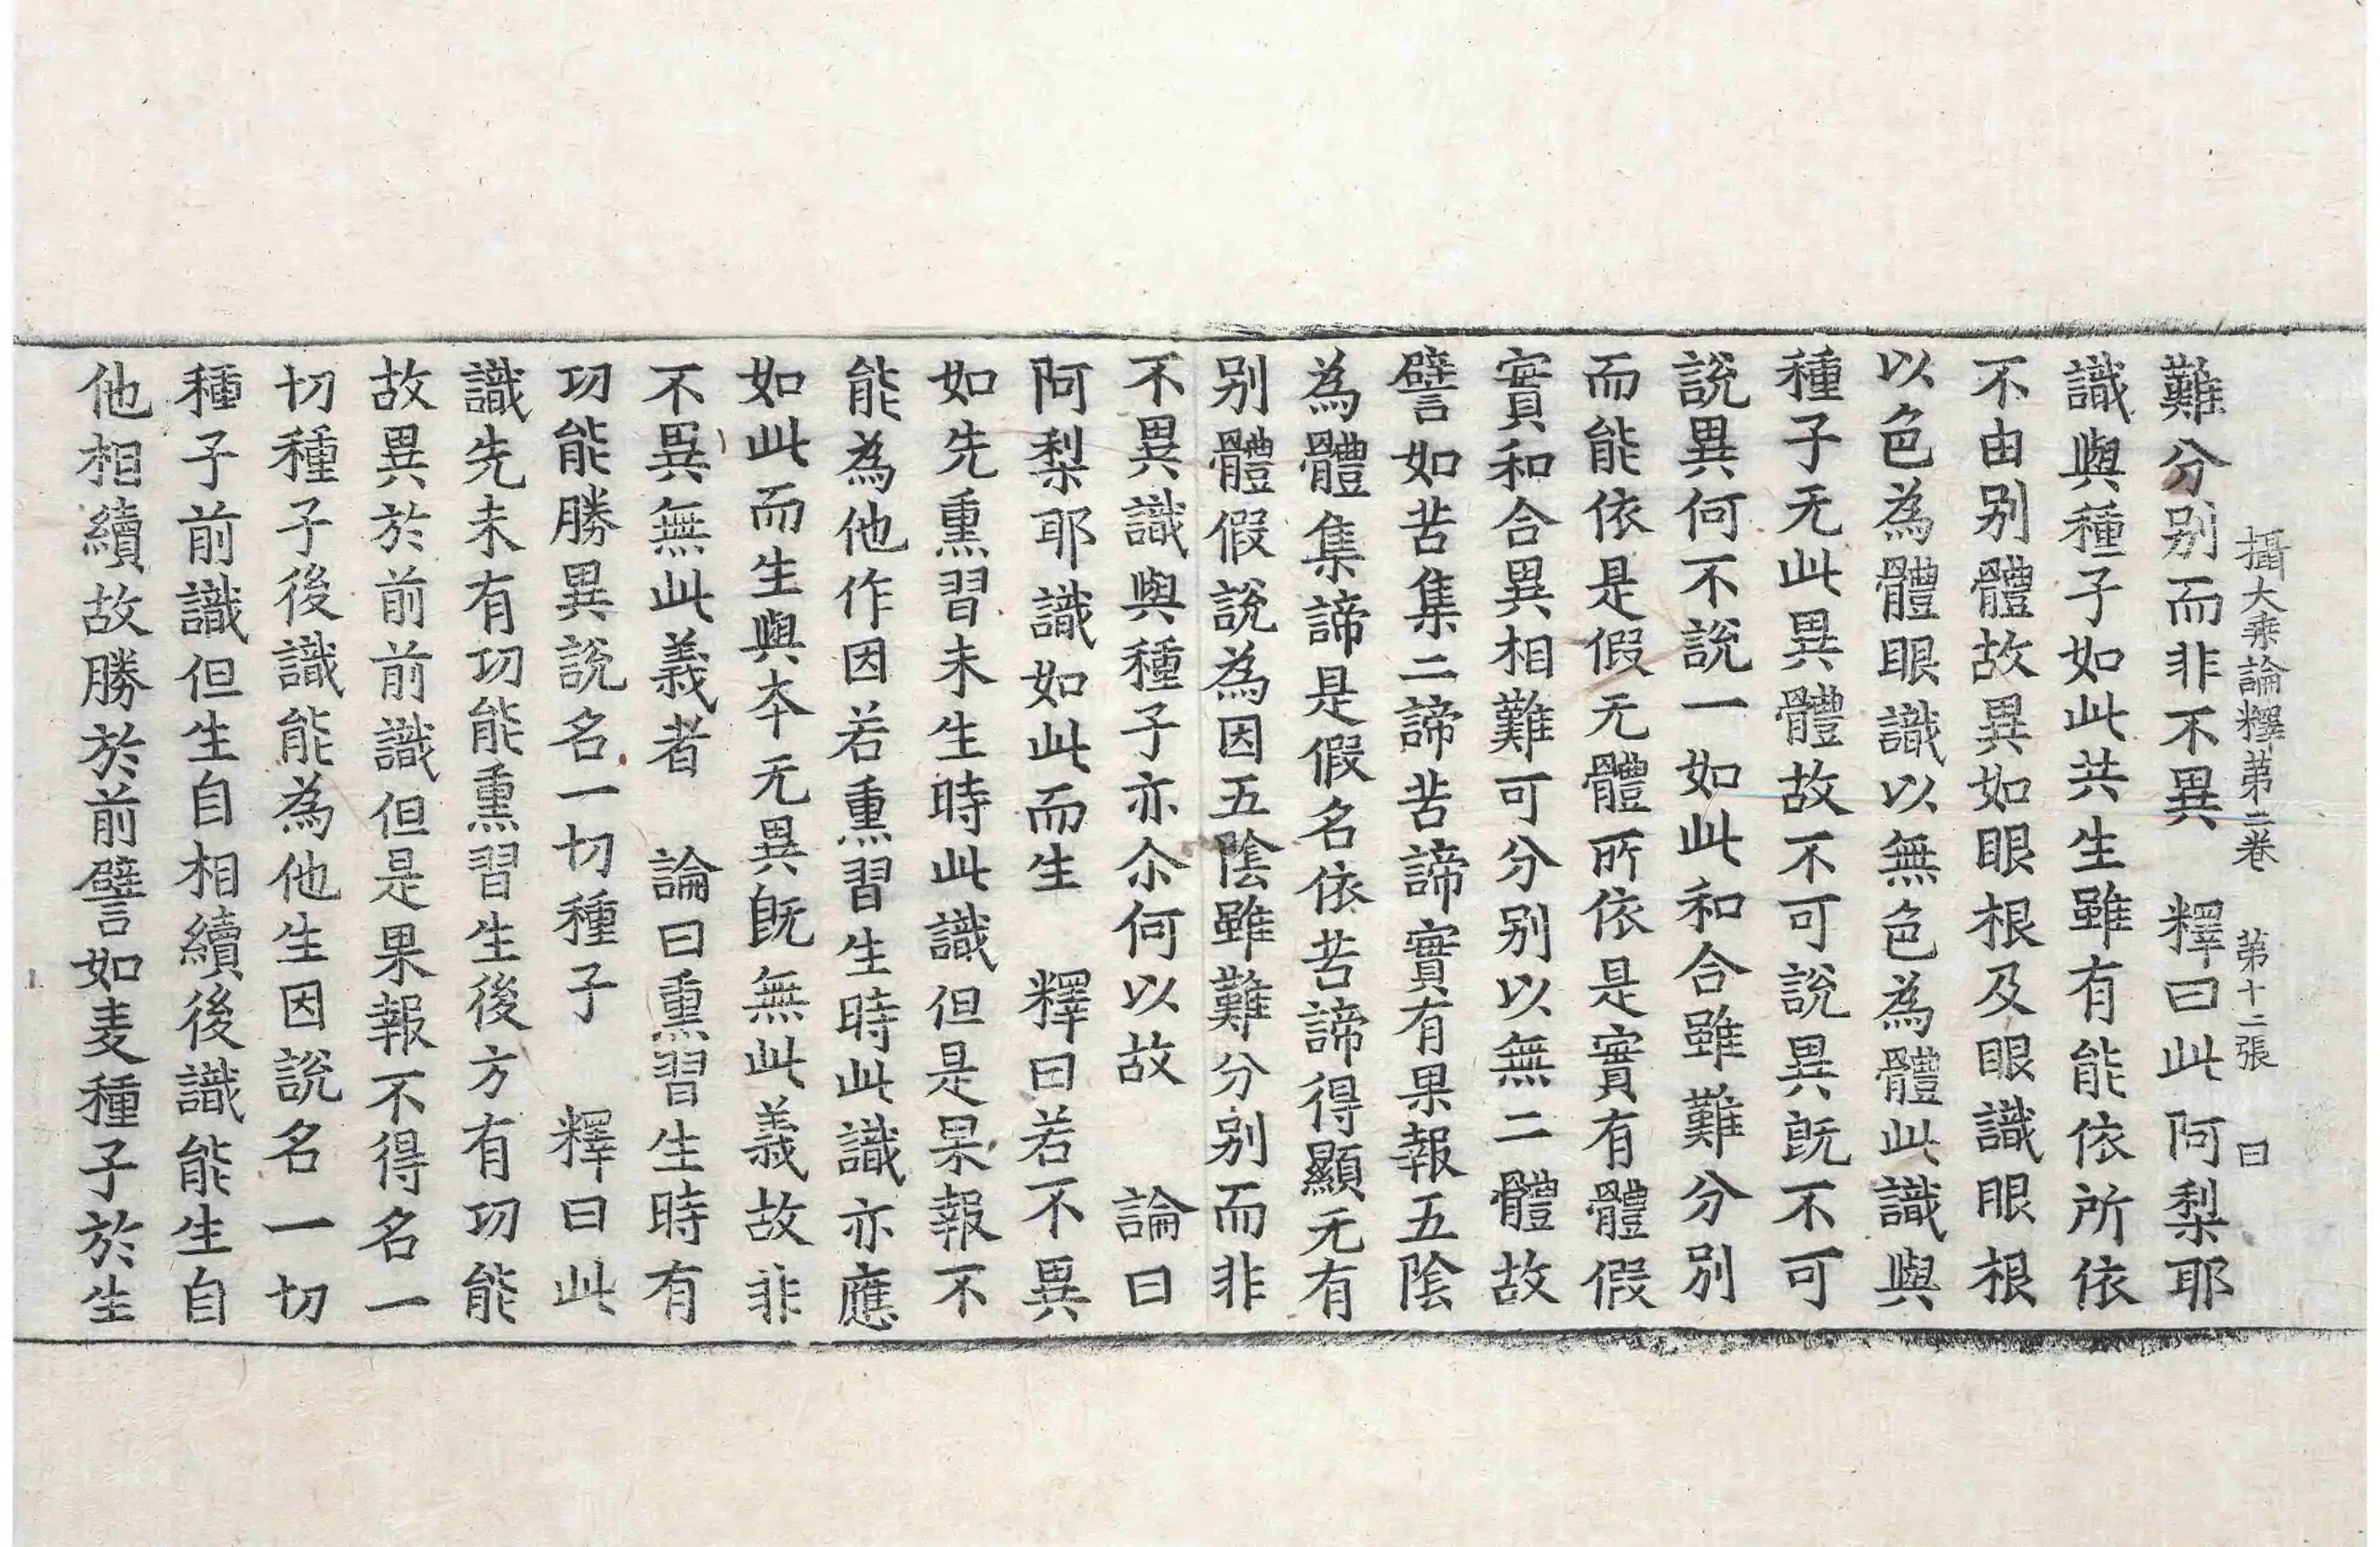 攝大乘論釋第二卷 第十二張 曰
難分别而非不異 釋曰此阿梨耶
識與種子如此共生雖有能依所依
不由别體故異如眼根及眼識眼根
以色為體眼識以無色為體此識與
種子无此異體故不可說異旣不可
說異何不說一如此和合雖難分别
而能依是假无體所依是實有體假
實和合異相難可分别以無二體故
譬如苦集二諦苦諦實有果報五陰
為體集諦是假名依苦諦得顯无有
别體假說為因五陰雖難分别而非
不異識與種子亦尒何以故 論曰
阿梨耶識如此而生 釋曰若不異
如先熏習未生時此識但是果報不
能為他作因若熏習生時此識亦應
如此而生與夲无異旣無此義故非
不異無此義者 論曰熏習生時有
功能勝異說名一切種子 釋曰此
識先未有功能熏習生後方有功能
故異於前前識但是果報不得名一
切種子後識能為他生因說名一切
種子前識但生自相續後識能生自
他相續故勝於前譬如麦種子於生